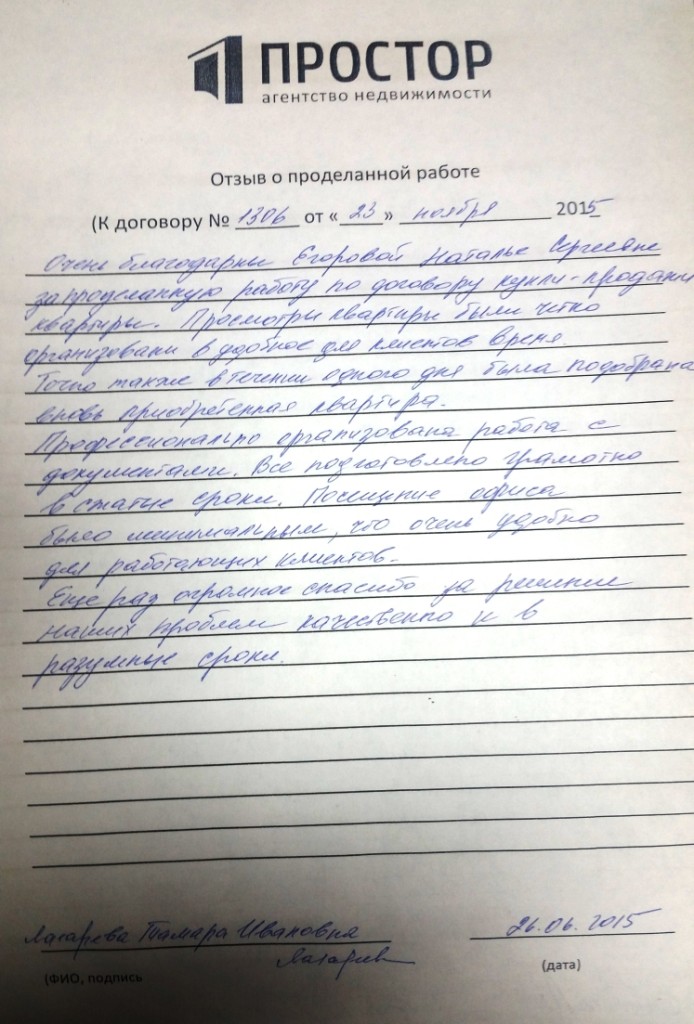 ПРОСТОР
агентство недвижимости
Отзыв о проделанной работе
(К договору № 1306 от «23» ноября 2015
Очень благодарны Егоровой Наталье Сергеевне
за проделанную работу по договору купли-продажи
квартиры. Просмотры квартиры были четко
организованы в удобное для клиентов время.
Точно также в течении одного дня была подобрана
вновь приобретенная квартира.
Профессионально организована работа с
документами. Все подготовлено грамотно
в сжатые сроки. Посещение офиса
было минимальным, что очень удобно
для работающих клиентов.
Еще раз огромное спасибо за решение
наших проблем качественно и в
разумные сроки.
Лазарева Тамара Ивановна
26.06.2015
Лазарев
(ФИО, подпись
(дата)